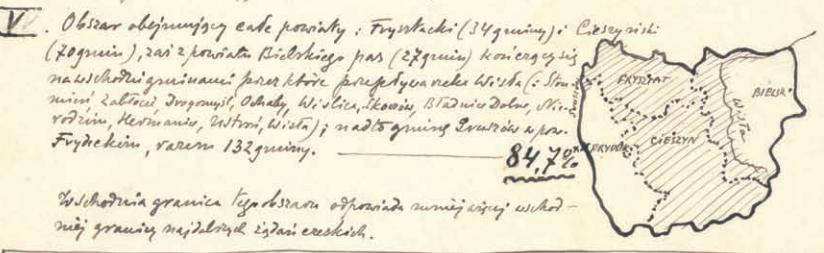 V. Obszar obejmujący całe powiaty: Frysztacki (34 gminy) i Cieszyński
(70 gmin), zaś z powiatu Bielskiego pas (27 gmin) kończący się
na wschodzie gminami przez które przepływa rzeka Wisła (: Stru-
mień Zabłocie, Drogomyśl, Ochaby, Wiślica, Skoczów, Bładnice Dolne, Nie-
rodzim, Hermanice, Ustroń, Wisła); nadto gminę Bruzów w pow.
Frydeckim, razem 132 gminy.
84,7%
Wschodnia granica tego obszaru odpowiada mniej więcej wschod-
niej granicy najdalszych żądań czeskich.
FRYSZTAT
BIELSK
WISŁA
CIESZYN
FRYDEK